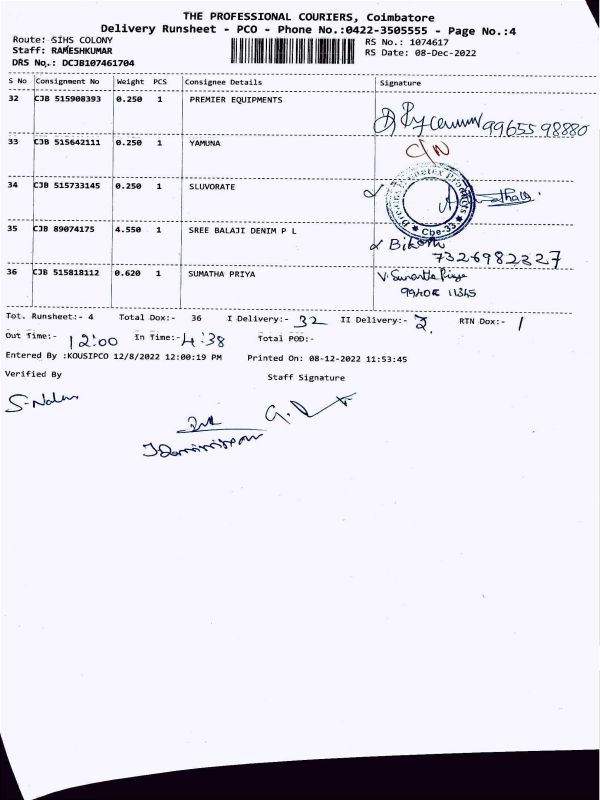 THE PROFESSIONAL COURIERS, Coimbatore
Delivery Runsheet - PCO - Phone No.:0422-3505555 - Page No.:4
Route: SIHS COLONY
RS No.: 1074617
Staff: RAMESHKUMAR
RS Date: 08-Dec-2022
DRS No.: DCJB107461704
S No Consignment No Weight PCS Consignee Details Signature
32 CJB 515908393 0.250 1 PREMIER EQUIPMENTS
99655 98880
33 CJB 515642111 0.250 1 YAMUNA C/N
34 CJB 515733145 0.250 1 SLUVORATE
Cbe-33
35 CJB 89074175 4.550 1 SREE BALAJI DENIM P L
7326982327
36 CJB 515818112 0.620 1 SUMATHA PRIYA
Tot. Runsheet:- 4 Total Dox:- 36 I Delivery:- 32 II Delivery:- 2. RTN Dox:- 1
Out Time:- 12:00 In Time:- 4:38 Total POD:-
Entered By :KOUSIPCO 12/8/2022 12:00:19 PM Printed On: 08-12-2022 11:53:45
Verified By Staff Signature